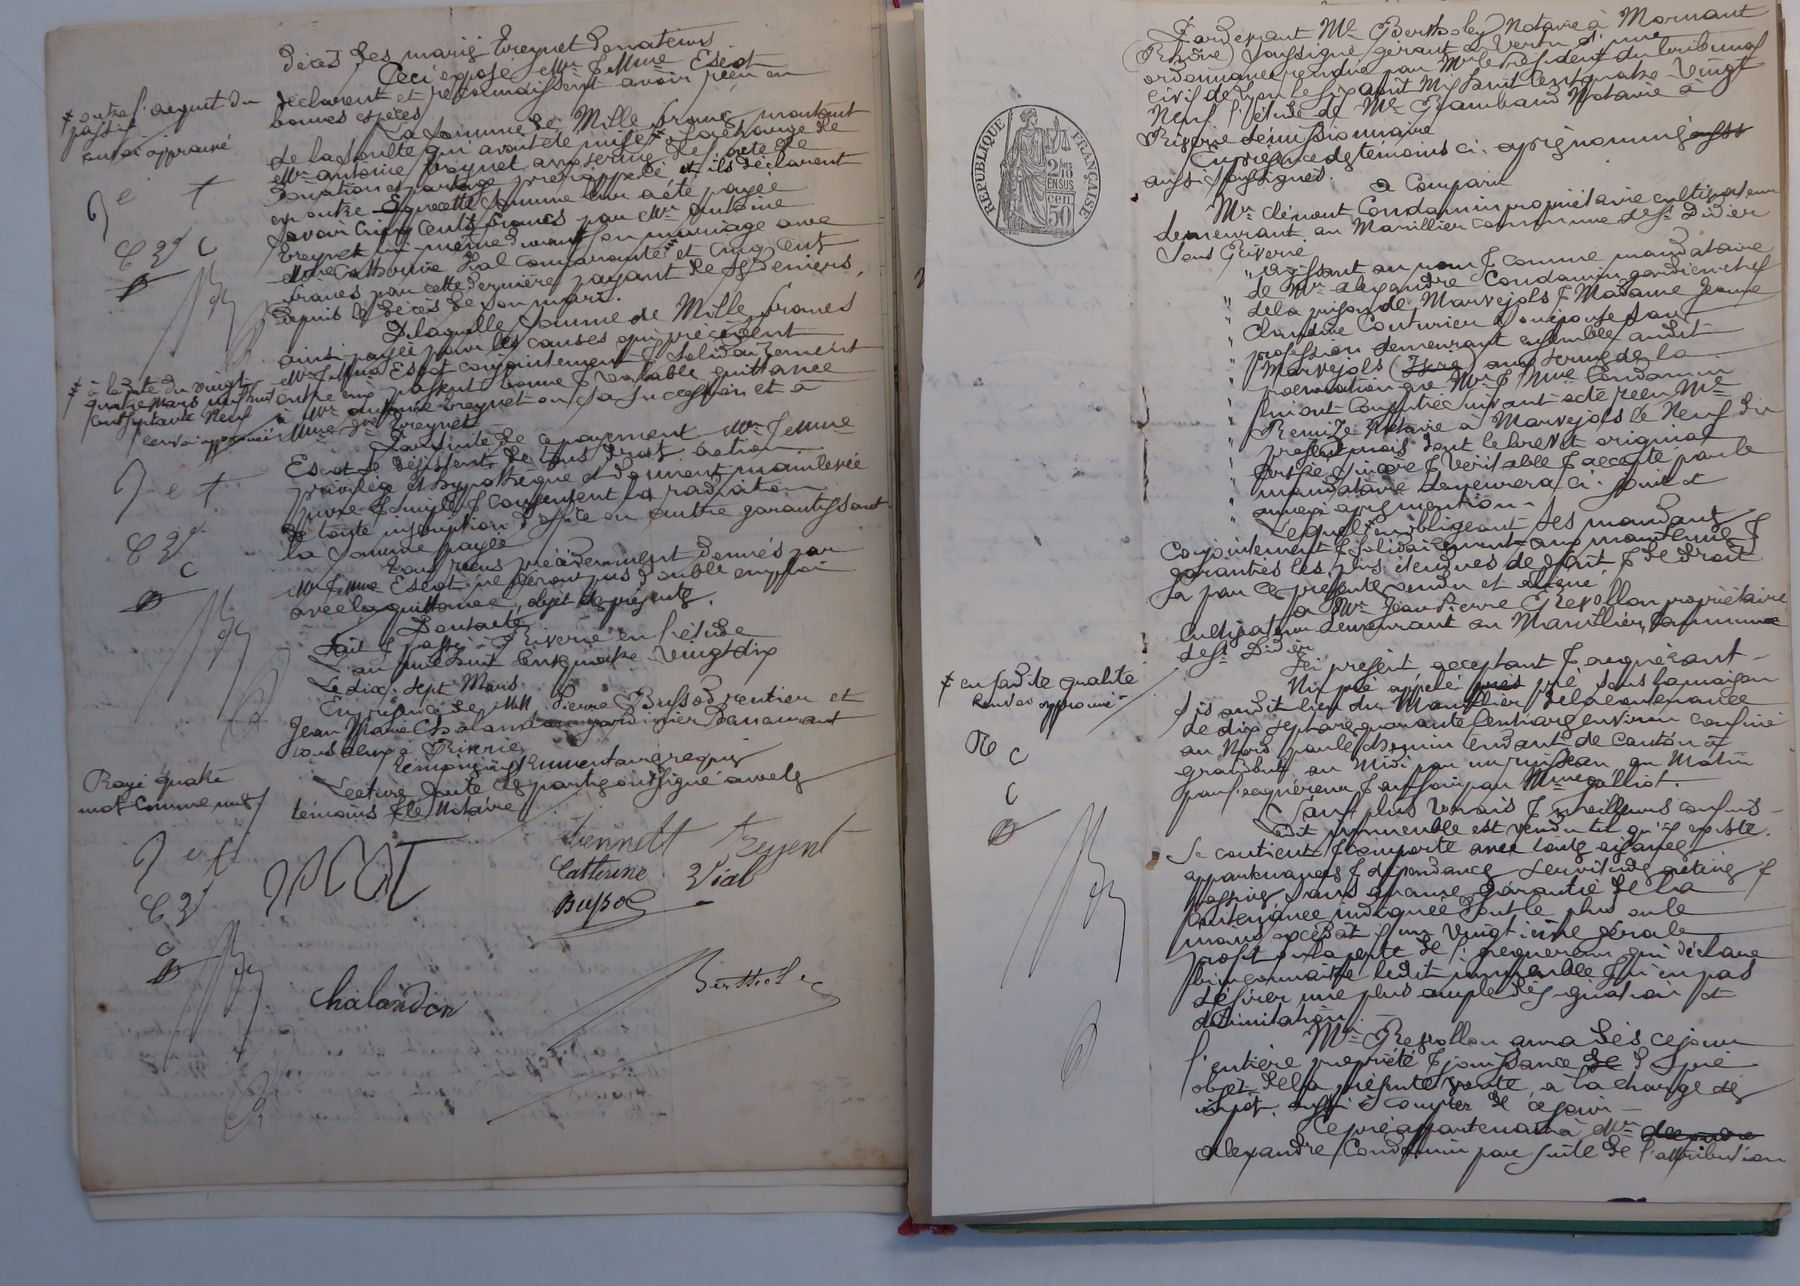 décès des mariés Treynet Donateurs
Ceci exposé Mr & Mme Escot
déclarent et reconnaissent avoir reçu en
bonnes espèces
La somme de Mille francs montant
de la soulte qui avait été mise * à la charge de
Mr antoine Treynet aux termes des acte de
Donation et partage prérappelé et ils déclarent
en outre que cette somme leur a été payée
savoir cinq cents francs par Mr antoine
Treynet lui même avant son mariage avec
Mme Catherine Vial comparante *** et cinq cent
francs par cette dernière payant de ses deniers,
depuis le décès de son mari.
De laquelle somme de Mille francs
ainsi payée pour les causes qui précèdent
Mr & Mme Escot conjointement & solidairement
entre eux passent bonne & valable quittance
à Mr antoine Treynet ou sa succession et à
Mme Vve Treynet
Par suite de ce payement Mr & Mme
Escot se désistent de tous droit, action,
privilège et hypothèque et donnent mainlevée
pure & simple & consentent la radiation
de toute inscription d'office ou autre garantissant
la somme payée
Tous reçus précédemment donnés par
Mr & Mme Escot ne feront pas double emploi
avec la quittance, objet des présentes.
Dont acte
Fait & passé à Riverie en l'étude
L'an mil huit cent quatre vingt dix
Le dix sept Mars
En présence de MM Pierre Bussod rentier et
Jean Marie Chalandon jardinier demeurant
tous deux à Riverie
témoins instrumentaires requis
Lecture faite les parties ont signé avec les
témoins & le Notaire
* outre l'acquit du
passif
renvoi approuvé
J e t
C V C
*** à la date du vingt
quatre Mars mil huit
cent septante Neuf
renvoi approuvé
J e t
C V
C
Rayé quatre
mots comme nuls
J e t
C V
C
ESCOT
Jennett Treynet
Catterine Vial
Bussod
Chalandon
Bertholey
Pardevant Me Bertholey Notaire à Mornant
(Rhône) soussigné, gérant en vertu d'une
ordonnance rendue par Mr le Président du tribunal
civil de Lyon le six août Mil huit cent quatre-vingt
Neuf l'étude de Me Rambaud Notaire à
Riverie démissionnaire
En présence des témoins ci-après nommés
aussi soussignés.
a Comparu
Mr Clément Condamin propriétaire cultivateur
demeurant au Marillier commune de St Didier
sous Riverie
" agissant au nom & comme mandataire
" de Mr Alexandre Condamin gardien chef
" de la prison de Marvejols & Madame Jeanne
" Claudine Couturier son épouse sans
" profession demeurant ensemble audit
" Marvejols (Isère) aux termes de la
" procuration que Mr & Mme Condamin
" lui ont conférée suivant acte reçu Me
" Remize Notaire à Marvejols le Neuf du
" présent mois dont le brevet original
" certifié sincère & véritable & accepté par le
" mandataire demeurera ci-joint et
" annexé après mention -
Lequel * en obligeant ses mandants
conjointement & solidairement aux maintenue &
garanties les plus étendues de fait & de droit
a par ces présentes vendu et aliéné
a Mr Jean Pierre Revollon propriétaire
cultivateur demeurant au Marillier, commune
de St Didier
Ici présent acceptant & acquérant -
Un pré appelé pré sous la maison
sis audit lieu du Marillier de la contenance
de dix sept ares quarante centiares environ confiné
au Nord par le chemin tendant de Canton à
au Midi par un ruisseau au Matin
par l'acquéreur & au soir par Mme galliot.
Sauf plus vrais & meilleurs confins -
Ledit immeuble est vendu tel qu'il existe,
se contient & comporte avec toutes aisances
appartenances & dépendances servitudes actives &
passives sans aucune garantie de la
contenance indiquée dont le plus ou le
moins excédât-il un vingtième fera le
profit ou la perte de l'acquéreur qui déclare
bien connaître ledit immeuble & n'en pas
désirer une plus ample désignation et
délimitation.
Mr Revollon aura dès ce jour
l'entière propriété & jouissance du pré
objet de la présente vente, à la charge des
impôts aussi à compter de ce jour -
Ce pré appartenait à Mr alexandre
alexandre Condamin par suite de l'attribution
* en sadite qualité
renvoi approuvé
Re C
C
RÉPUBLIQUE FRANÇAISE
2/10
EN SUS
50 cen